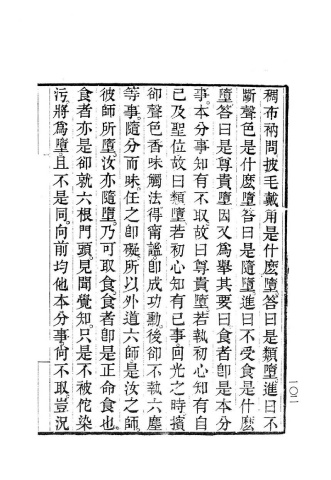 稠布衲問披毛戴角是什麽墮答曰是類墮進曰不
斷聲色是什麽墮答曰是隨墮進曰不受食是什麽
墮答曰是尊貴墮因又爲舉其要曰食者卽是本分
事本分事知有不取故曰尊貴墮若執初心知有自
己及聖位故曰類墮若初心知有己事回光之時擯
卻聲色香味觸法得甯謐卽成功勳後卻不執六塵
等事隨分而昧任之卽礙所以外道六師是汝之師
彼師所墮汝亦隨墮乃可取食食者卽是正命食也
食者亦是卻就六根門頭見聞覺知只是不被佗染
污將爲墮且不是同向前均他本分事尚不取豈況
一〇一